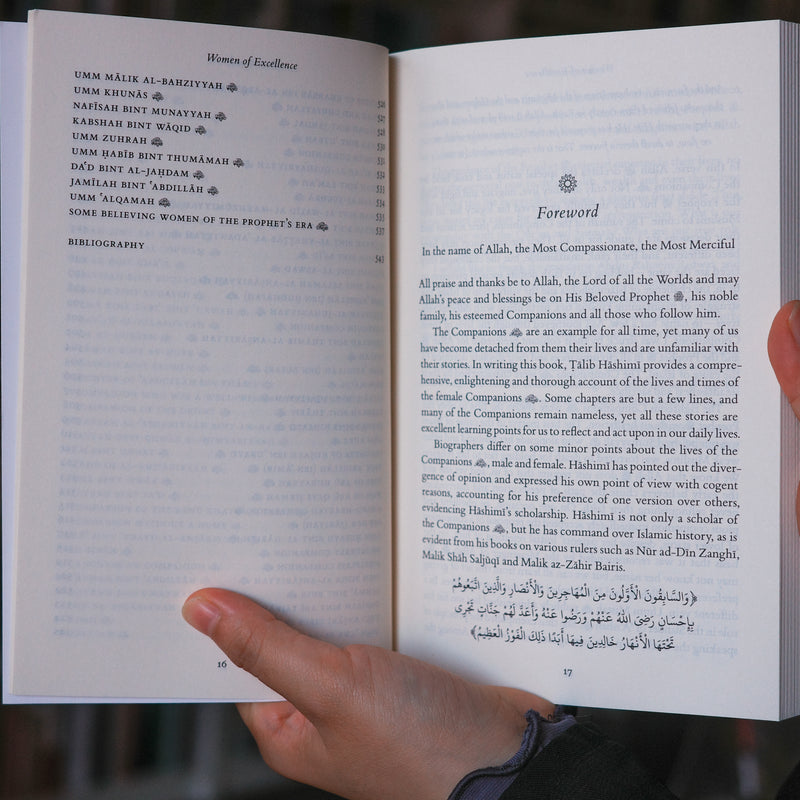 Women of Excellence
UMM MĀLIK AL-BAHZIYYAH
UMM KHUNĀS 526
NAFĪSAH BINT MUNAYYAH 527
KABSHAH BINT WĀQID 528
UMM ZUHRAH 529
UMM ḤABĪB BINT THUMĀMAH 530
DAʿD BINT AL-JAḤDAM 532
JAMĪLAH BINT ʿABDILLĀH 533
UMM ʿALQAMAH 535
SOME BELIEVING WOMEN OF THE PROPHET'S ERA 537
BIBLIOGRAPHY 543
16
Foreword
In the name of Allah, the Most Compassionate, the Most Merciful
All praise and thanks be to Allah, the Lord of all the Worlds and may
Allah's peace and blessings be on His Beloved Prophet ﷺ, his noble
family, his esteemed Companions and all those who follow him.
The Companions are an example for all time, yet many of us
have become detached from them their lives and are unfamiliar with
their stories. In writing this book, Ṭālib Hāshimī provides a compre-
hensive, enlightening and thorough account of the lives and times of
the female Companions. Some chapters are but a few lines, and
many of the Companions remain nameless, yet all these stories are
excellent learning points for us to reflect and act upon in our daily lives.
Biographers differ on some minor points about the lives of the
Companions, male and female. Hāshimī has pointed out the diver-
gence of opinion and expressed his own point of view with cogent
reasons, accounting for his preference of one version over others,
evidencing Hāshimī's scholarship. Hāshimī is not only a scholar of
the Companions, but he has command over Islamic history, as is
evident from his books on various rulers such as Nūr ad-Dīn Zanghī,
Malik Shāh Saljūqī and Malik az-Zāhir Bairis.
﴿وَالسَّابِقُونَ الْأَوَّلُونَ مِنَ الْمُهَاجِرِينَ وَالْأَنْصَارِ وَالَّذِينَ اتَّبَعُوهُمْ
بِإِحْسَانٍ رَضِيَ اللَّهُ عَنْهُمْ وَرَضُوا عَنْهُ وَأَعَدَّ لَهُمْ جَنَّاتٍ تَجْرِي
تَحْتَهَا الْأَنْهَارُ خَالِدِينَ فِيهَا أَبَدًا ذَلِكَ الْفَوْزُ الْعَظِيمُ﴾
17